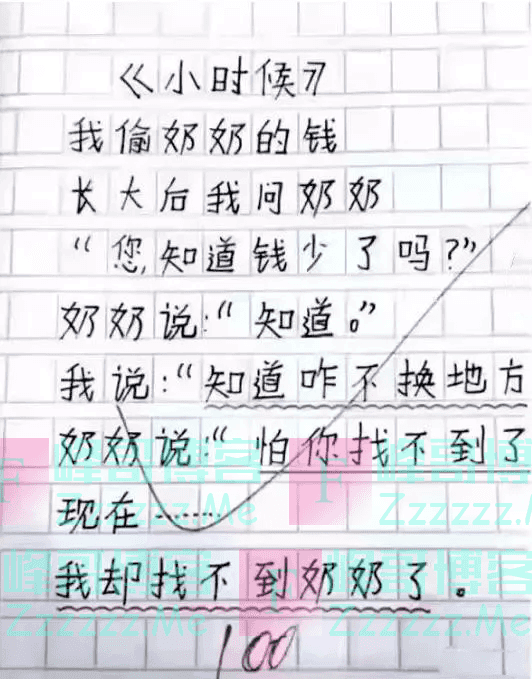 《小时候》
我偷奶奶的钱
长大后我问奶奶
“您知道钱少了吗?”
奶奶说:“知道。”
我说:“知道咋不换地方
奶奶说:“怕你找不到了
现在……
我却找不到奶奶了。
100
F 峰哥博客
Zzzzzz.Me
F 峰哥博客
Zzzzzz.Me
峰哥博客
Zzzzzz.Me
F 峰哥博客
Zzzzzz.Me